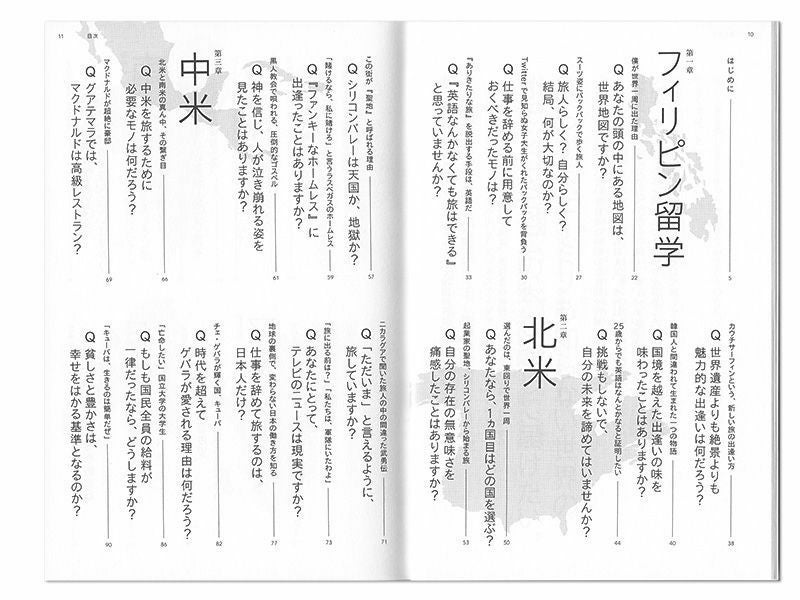 10
はじめに
5
第一章
フィリピン留学
僕が世界一周に出た理由
Q あなたの頭の中にある地図は、
世界地図ですか?
22
スーツ姿にバックパックで歩く旅人
Q 旅人らしく?自分らしく?
結局、何が大切なのか?
27
Twitterで見知らぬ女子大生がくれたバックパックを背負う
Q 仕事を辞める前に用意して
おくべきだったモノは?
30
『ありきたりな旅』を脱出する手段は、英語だ
Q『英語なんかなくても旅はできる』
と思っていませんか?
33
カウチサーフィンという、新しい旅の出逢い方
Q 世界遺産よりも絶景よりも
魅力的な出逢いは何だろう?
38
韓国人と間違われて生まれた一つの物語
Q 国境を越えた出逢いの味を
味わったことはありますか?
40
25歳からでも英語はなんとかなると証明したい
Q 挑戦もしないで、
自分の未来を諦めてはいませんか?
44
第二章
北米
選んだのは、東回りで世界一周
Q あなたなら、1ヵ国目はどの国を選ぶ?
50
起業家の聖地、シリコンバレーから始まる旅
Q 自分の存在の無意味さを
痛感したことはありますか?
53
11
目次
この街が『聖地』と呼ばれる理由
Q シリコンバレーは天国か、地獄か?
57
「賭けるなら、私に賭けろ」と言うラスベガスのホームレス
Q『ファンキーなホームレス』に
出逢ったことはありますか?
59
黒人教会で唄われる、圧倒的なゴスペル
Q 神を信じ、人が泣き崩れる姿を
見たことはありますか?
61
第三章
中米
北米と南米の真ん中、その繋ぎ目
Q 中米を旅するために
必要なモノは何だろう?
66
マクドナルドが超絶に豪邸
Q グアテマラでは、
マクドナルドは高級レストラン?
69
ニカラグアで聞いた旅人の中の間違った武勇伝
Q「ただいま」と言えるように、
旅していますか?
71
「旅に出る前は?」「私たちは、軍隊にいたわよ」
Q あなたにとって、
テレビのニュースは現実ですか?
73
地球の裏側で、変わらない日本の働き方を知る
Q 仕事を辞めて旅するのは、
日本人だけ?
77
チェ・ゲバラが輝く国、キューバ
Q 時代を超えて
ゲバラが愛される理由は何だろう?
82
「亡命したい」国立大学の大学生
Q もしも国民全員の給料が
一律だったなら、どうしますか?
86
「キューバは、生きるのは簡単だぜ」
Q 貧しさと豊かさは、
幸せをはかる基準となるのか?
90